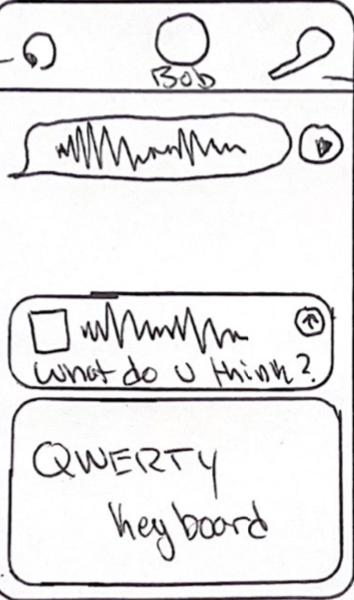 Bob
What do u think?
QWERTY
Keyboard